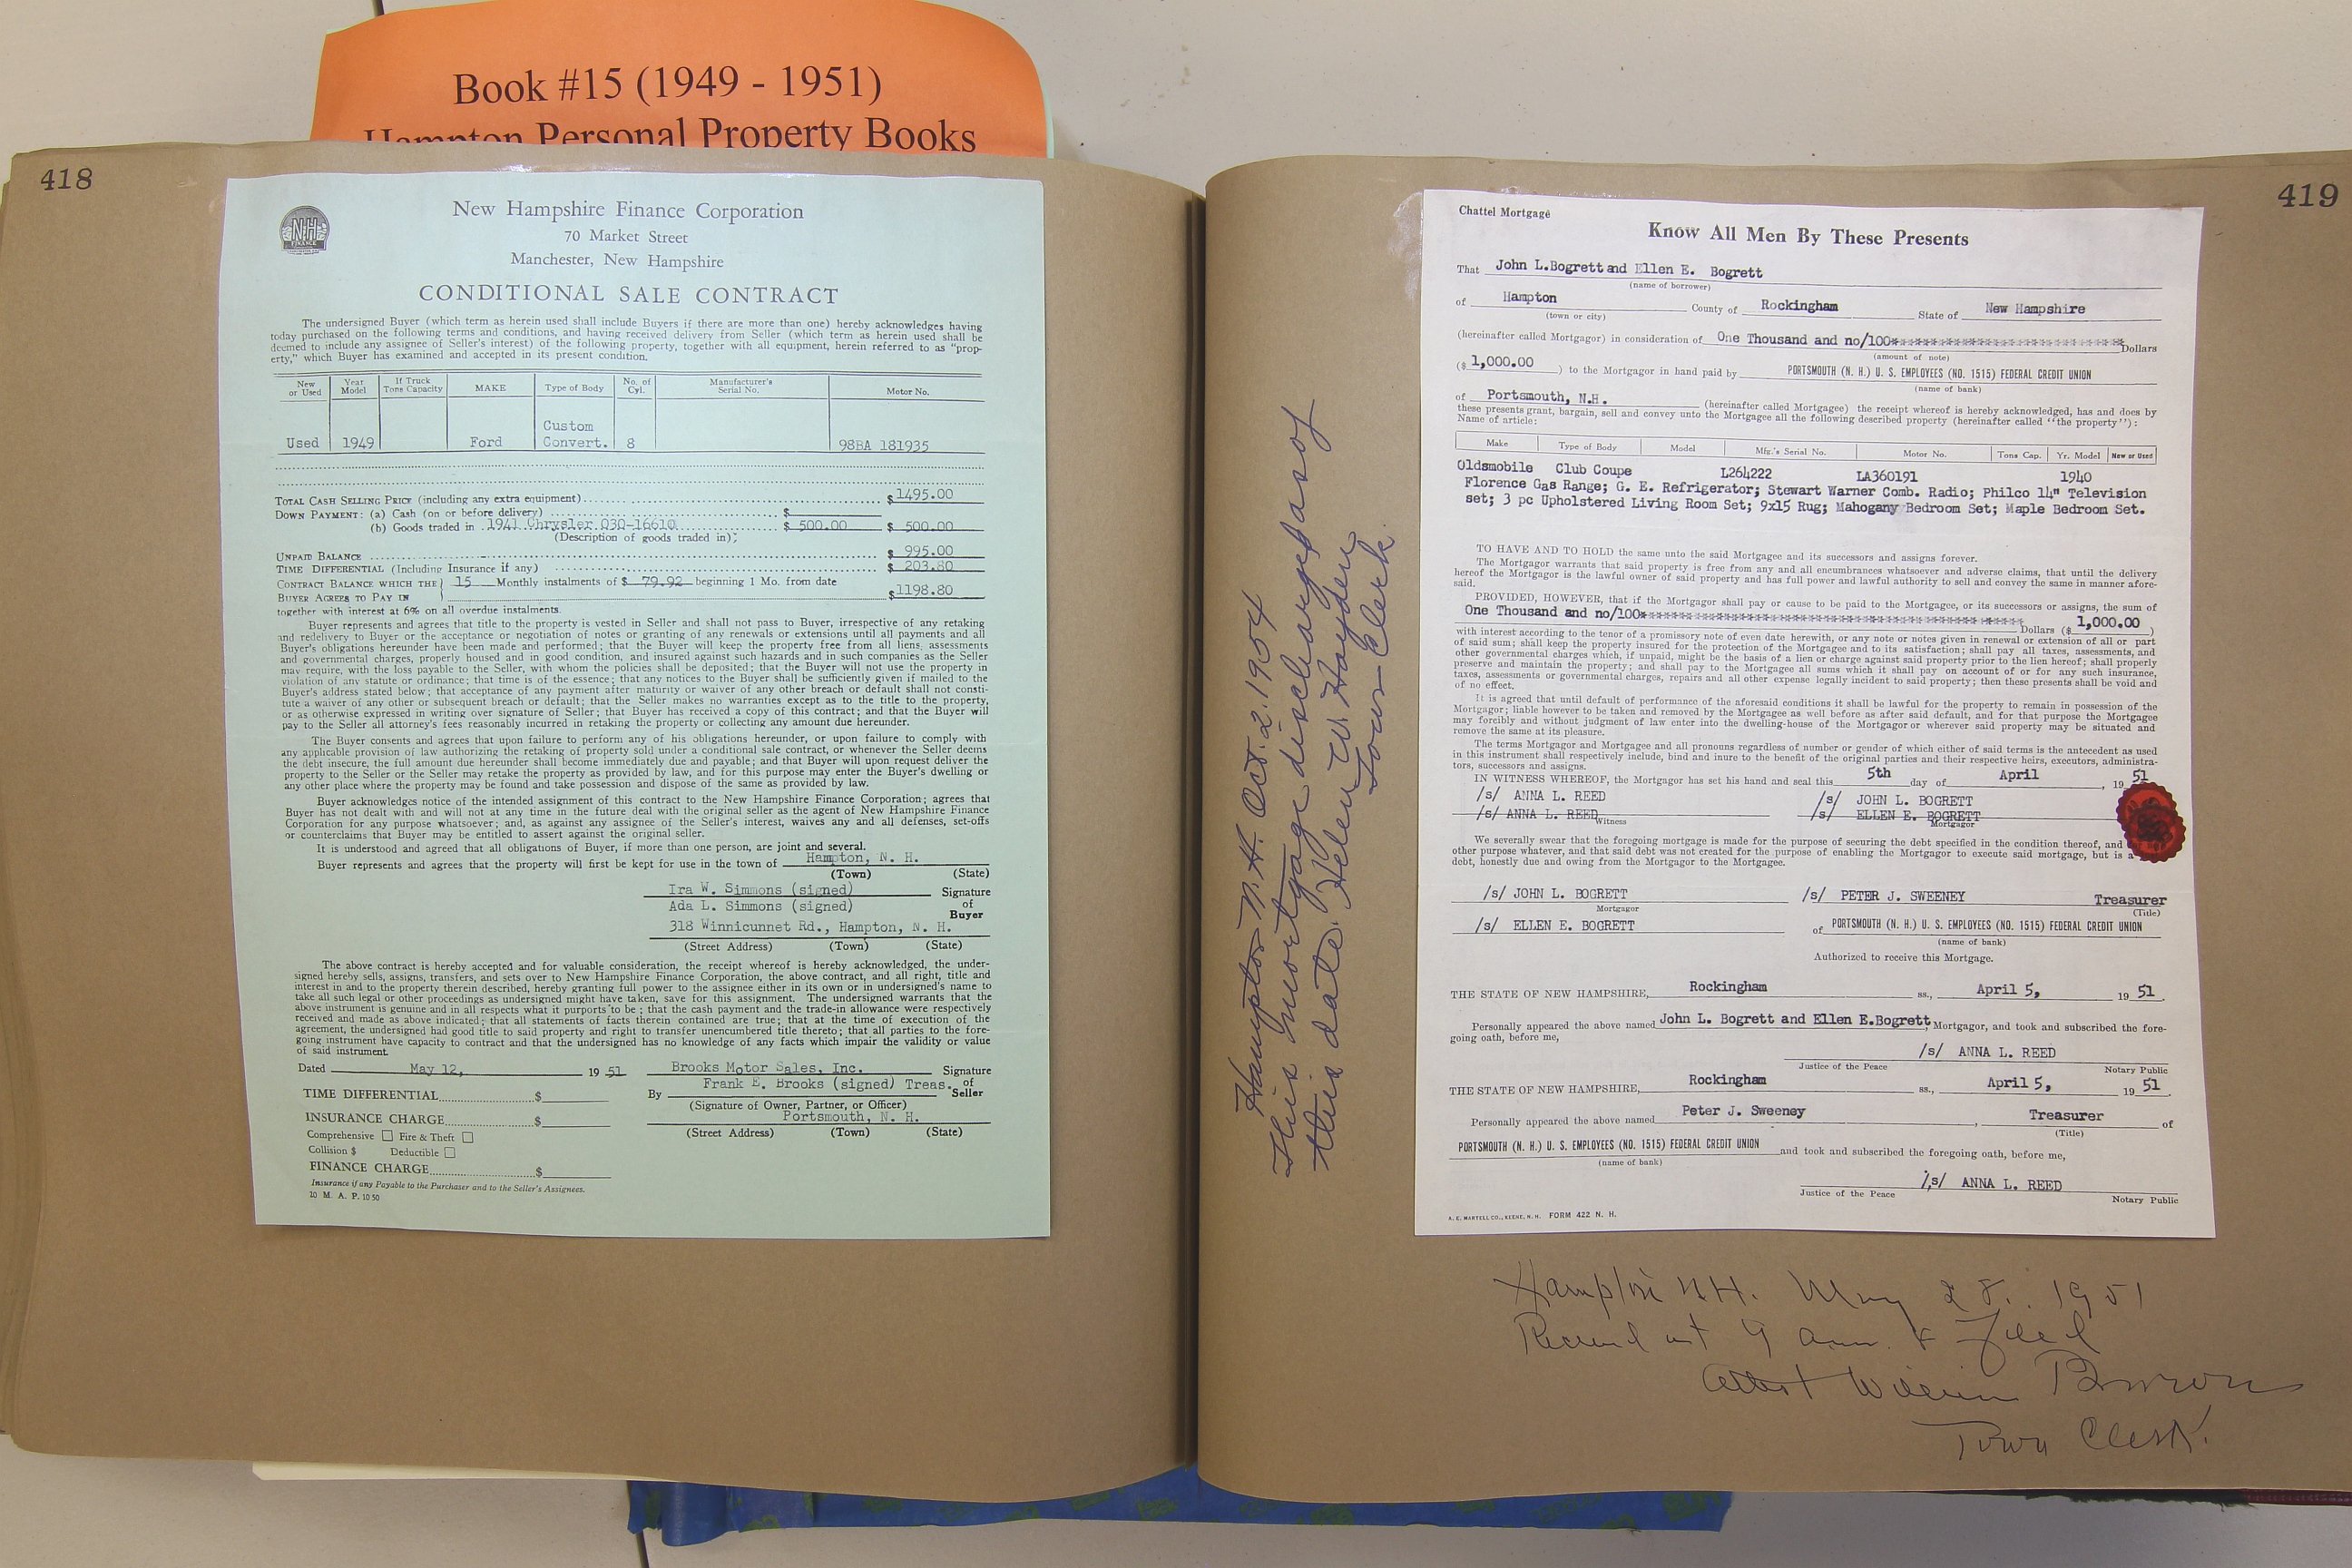 Book #15 (1949 - 1951)
Hampton Personal Property Books
418
NH
FINANCE
New Hampshire Finance Corporation
70 Market Street
Manchester, New Hampshire
CONDITIONAL SALE CONTRACT
The undersigned Buyer (which term as herein used shall include Buyers if there are more than one) hereby acknowledges having
today purchased on the following terms and conditions, and having received delivery from Seller (which term as herein used shall be
deemed to include any assignee of Seller's interest) of the following property, together with all equipment, herein referred to as "prop-
erty," which Buyer has examined and accepted in its present condition.
New or Used Year Model If Truck Tons Capacity MAKE Type of Body No. of Cyl. Manufacturer's Serial No. Motor No.
Used 1949 Ford Custom Convert. 8 98BA 181935
TOTAL CASH SELLING PRICE (including any extra equipment) $1495.00
DOWN PAYMENT: (a) Cash (on or before delivery) $
(b) Goods traded in 1941 Chrysler 030-16610 $ 500.00 $ 500.00
(Description of goods traded in);
UNPAID BALANCE $ 995.00
TIME DIFFERENTIAL (Including Insurance if any) $ 203.80
CONTRACT BALANCE WHICH THE 15 Monthly instalments of $ 79.92 beginning 1 Mo. from date
BUYER AGREES TO PAY IN $1198.80
together with interest at 6% on all overdue instalments.
Buyer represents and agrees that title to the property is vested in Seller and shall not pass to Buyer, irrespective of any retaking
and redelivery to Buyer or the acceptance or negotiation of notes or granting of any renewals or extensions until all payments and all
Buyer's obligations hereunder have been made and performed; that the Buyer will keep the property free from all liens, assessments
and governmental charges, properly housed and in good condition, and insured against such hazards and in such companies as the Seller
may require, with the loss payable to the Seller, with whom the policies shall be deposited; that the Buyer will not use the property in
violation of any statute or ordinance; that time is of the essence; that any notices to the Buyer shall be sufficiently given if mailed to the
Buyer's address stated below; that acceptance of any payment after maturity or waiver of any other breach or default shall not consti-
tute a waiver of any other or subsequent breach or default; that the Seller makes no warranties except as to the title to the property,
or as otherwise expressed in writing over signature of Seller; that Buyer has received a copy of this contract; and that the Buyer will
pay to the Seller all attorney's fees reasonably incurred in retaking the property or collecting any amount due hereunder.
The Buyer consents and agrees that upon failure to perform any of his obligations hereunder, or upon failure to comply with
any applicable provision of law authorizing the retaking of property sold under a conditional sale contract, or whenever the Seller deems
the debt insecure, the full amount due hereunder shall become immediately due and payable; and that Buyer will upon request deliver the
property to the Seller or the Seller may retake the property as provided by law, and for this purpose may enter the Buyer's dwelling or
any other place where the property may be found and take possession and dispose of the same as provided by law.
Buyer acknowledges notice of the intended assignment of this contract to the New Hampshire Finance Corporation; agrees that
Buyer has not dealt with and will not at any time in the future deal with the original seller as the agent of New Hampshire Finance
Corporation for any purpose whatsoever; and, as against any assignee of the Seller's interest, waives any and all defenses, set-offs
or counterclaims that Buyer may be entitled to assert against the original seller.
It is understood and agreed that all obligations of Buyer, if more than one person, are joint and several.
Buyer represents and agrees that the property will first be kept for use in the town of Hampton, N. H.
(Town) (State)
Ira W. Simmons (signed) Signature
Ada L. Simmons (signed) of
Buyer
318 Winnicunnet Rd., Hampton, N. H.
(Street Address) (Town) (State)
The above contract is hereby accepted and for valuable consideration, the receipt whereof is hereby acknowledged, the under-
signed hereby sells, assigns, transfers, and sets over to New Hampshire Finance Corporation, the above contract, and all right, title and
interest in and to the property therein described, hereby granting full power to the assignee either in its own or in undersigned's name to
take all such legal or other proceedings as undersigned might have taken, save for this assignment. The undersigned warrants that the
above instrument is genuine and in all respects what it purports to be; that the cash payment and the trade-in allowance were respectively
received and made as above indicated; that all statements of facts therein contained are true; that at the time of execution of the
agreement, the undersigned had good title to said property and right to transfer unencumbered title thereto; that all parties to the fore-
going instrument have capacity to contract and that the undersigned has no knowledge of any facts which impair the validity or value
of said instrument.
Dated May 12, 19 51 Brooks Motor Sales, Inc. Signature
Frank E. Brooks (signed) Treas. of
TIME DIFFERENTIAL $ By Seller
(Signature of Owner, Partner, or Officer)
INSURANCE CHARGE $ Portsmouth, N. H.
(Street Address) (Town) (State)
Comprehensive Fire & Theft
Collision $ Deductible
FINANCE CHARGE $
Insurance if any Payable to the Purchaser and to the Seller's Assignees.
10 M. A. P. 10 50
419
Hampton N.H. Oct. 2. 1954
This mortgage discharged as of
this date. Helen W. Hayden
Town Clerk.
Chattel Mortgage
Know All Men By These Presents
That John L.Bogrett and Ellen E. Bogrett
(name of borrower)
of Hampton County of Rockingham State of New Hampshire
(town or city)
(hereinafter called Mortgagor) in consideration of One Thousand and no/100************************** Dollars
(amount of note)
($ 1,000.00 ) to the Mortgagor in hand paid by PORTSMOUTH (N. H.) U. S. EMPLOYEES (NO. 1515) FEDERAL CREDIT UNION
(name of bank)
of Portsmouth, N.H. (hereinafter called Mortgagee) the receipt whereof is hereby acknowledged, has and does by
these presents grant, bargain, sell and convey unto the Mortgagee all the following described property (hereinafter called "the property"):
Name of article:
Make Type of Body Model Mfg.'s Serial No. Motor No. Tons Cap. Yr. Model New or Used
Oldsmobile Club Coupe L264222 LA360191 1940
Florence Gas Range; G. E. Refrigerator; Stewart Warner Comb. Radio; Philco 14" Television
set; 3 pc Upholstered Living Room Set; 9x15 Rug; Mahogany Bedroom Set; Maple Bedroom Set.
TO HAVE AND TO HOLD the same unto the said Mortgagee and its successors and assigns forever.
The Mortgagor warrants that said property is free from any and all encumbrances whatsoever and adverse claims, that until the delivery
hereof the Mortgagor is the lawful owner of said property and has full power and lawful authority to sell and convey the same in manner afore-
said.
PROVIDED, HOWEVER, that if the Mortgagor shall pay or cause to be paid to the Mortgagee, or its successors or assigns, the sum of
One Thousand and no/100****************************************** Dollars ($ 1,000.00 )
with interest according to the tenor of a promissory note of even date herewith, or any note or notes given in renewal or extension of all or part
of said sum; shall keep the property insured for the protection of the Mortgagee and to its satisfaction; shall pay all taxes, assessments, and
other governmental charges which, if unpaid, might be the basis of a lien or charge against said property prior to the lien hereof; shall properly
preserve and maintain the property; and shall pay to the Mortgagee all sums which it shall pay on account of or for any such insurance,
taxes, assessments or governmental charges, repairs and all other expense legally incident to said property; then these presents shall be void and
of no effect.
It is agreed that until default of performance of the aforesaid conditions it shall be lawful for the property to remain in possession of the
Mortgagor; liable however to be taken and removed by the Mortgagee as well before as after said default, and for that purpose the Mortgagee
may forcibly and without judgment of law enter into the dwelling-house of the Mortgagor or wherever said property may be situated and
remove the same at its pleasure.
The terms Mortgagor and Mortgagee and all pronouns regardless of number or gender of which either of said terms is the antecedent as used
in this instrument shall respectively include, bind and inure to the benefit of the original parties and their respective heirs, executors, administra-
tors, successors and assigns.
IN WITNESS WHEREOF, the Mortgagor has set his hand and seal this 5th day of April , 19 51
/s/ ANNA L. REED /s/ JOHN L. BOGRETT
/s/ ANNA L. REED /s/ ELLEN E. BOGRETT
Witness Mortgagor
We severally swear that the foregoing mortgage is made for the purpose of securing the debt specified in the condition thereof, and
other purpose whatever, and that said debt was not created for the purpose of enabling the Mortgagor to execute said mortgage, but is a
debt, honestly due and owing from the Mortgagor to the Mortgagee.
/s/ JOHN L. BOGRETT /s/ PETER J. SWEENEY Treasurer
Mortgagor (Title)
/s/ ELLEN E. BOGRETT of PORTSMOUTH (N. H.) U. S. EMPLOYEES (NO. 1515) FEDERAL CREDIT UNION
(name of bank)
Authorized to receive this Mortgage.
THE STATE OF NEW HAMPSHIRE, Rockingham ss., April 5, 19 51.
Personally appeared the above named John L. Bogrett and Ellen E.Bogrett, Mortgagor, and took and subscribed the fore-
going oath, before me,
/s/ ANNA L. REED
Justice of the Peace Notary Public
THE STATE OF NEW HAMPSHIRE, Rockingham ss., April 5, 19 51
Personally appeared the above named Peter J. Sweeney , Treasurer of
(Title)
PORTSMOUTH (N. H.) U. S. EMPLOYEES (NO. 1515) FEDERAL CREDIT UNION and took and subscribed the foregoing oath, before me,
(name of bank)
/s/ ANNA L. REED
Justice of the Peace Notary Public
A. E. MARTELL CO., KEENE, N. H. FORM 422 N. H.
Hampton N.H. May 28. 1951
Received at 9 a.m. & Filed
Attest William Brown
Town Clerk.